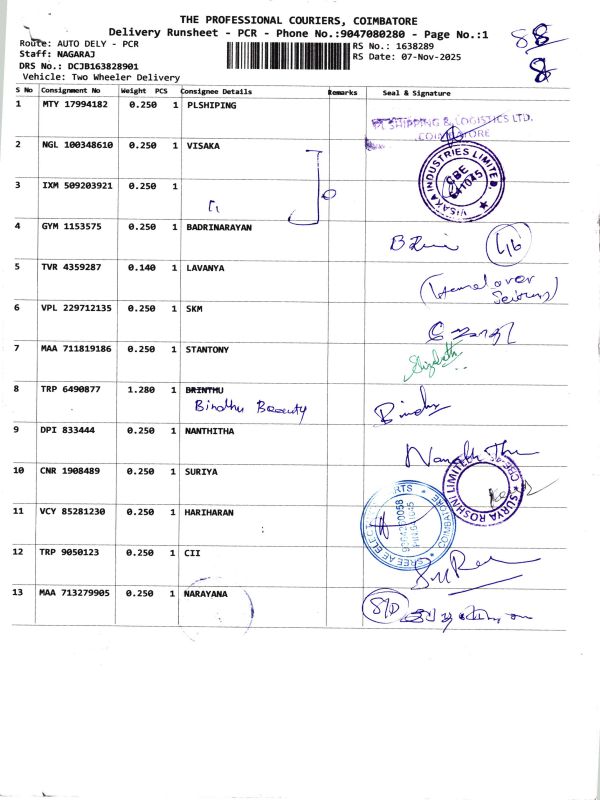 THE PROFESSIONAL COURIERS, COIMBATORE
Delivery Runsheet - PCR - Phone No.:9047080280 - Page No.:1
88
8
Route: AUTO DELY - PCR
RS No.: 1638289
Staff: NAGARAJ
RS Date: 07-Nov-2025
DRS No.: DCJB163828901
Vehicle: Two Wheeler Delivery
S No Consignment No Weight PCS Consignee Details Remarks Seal & Signature
1 MTY 17994182 0.250 1 PLSHIPING
SHIPPING & LOGISTICS LTD.
COIMBATORE
2 NGL 100348610 0.250 1 VISAKA
VISAKA INDUSTRIES LIMITED.
CBE
641045
3 IXM 509203921 0.250 1
4 GYM 1153575 0.250 1 BADRINARAYAN
5 TVR 4359287 0.140 1 LAVANYA
6 VPL 229712135 0.250 1 SKM
7 MAA 711819186 0.250 1 STANTONY
Elizabeth
8 TRP 6490877 1.280 1 BRINTHU
Bindhu Beauty
Bindhu
9 DPI 833444 0.250 1 NANTHITHA
10 CNR 1908489 0.250 1 SURIYA
SURYA ROSHNI LIMITED
CBE
11 VCY 85281230 0.250 1 HARIHARAN
COIMBATORE
12 TRP 9050123 0.250 1 CII
13 MAA 713279905 0.250 1 NARAYANA
S/O